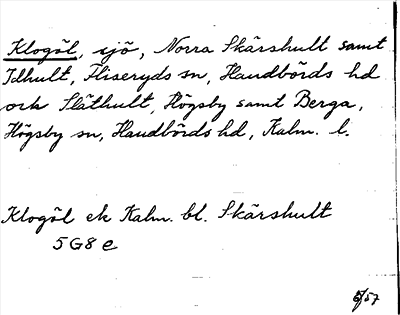 Klogöl, sjö, Norra Skärshult samt
Idhult, Fliseryds sn, Handbörds hd
och Släthult, Högsby samt Berga,
Högsby sn, Handbörds hd, Kalm. l.
Klogöl ek Kalm. bl. Skärshult
5G8e
5/57